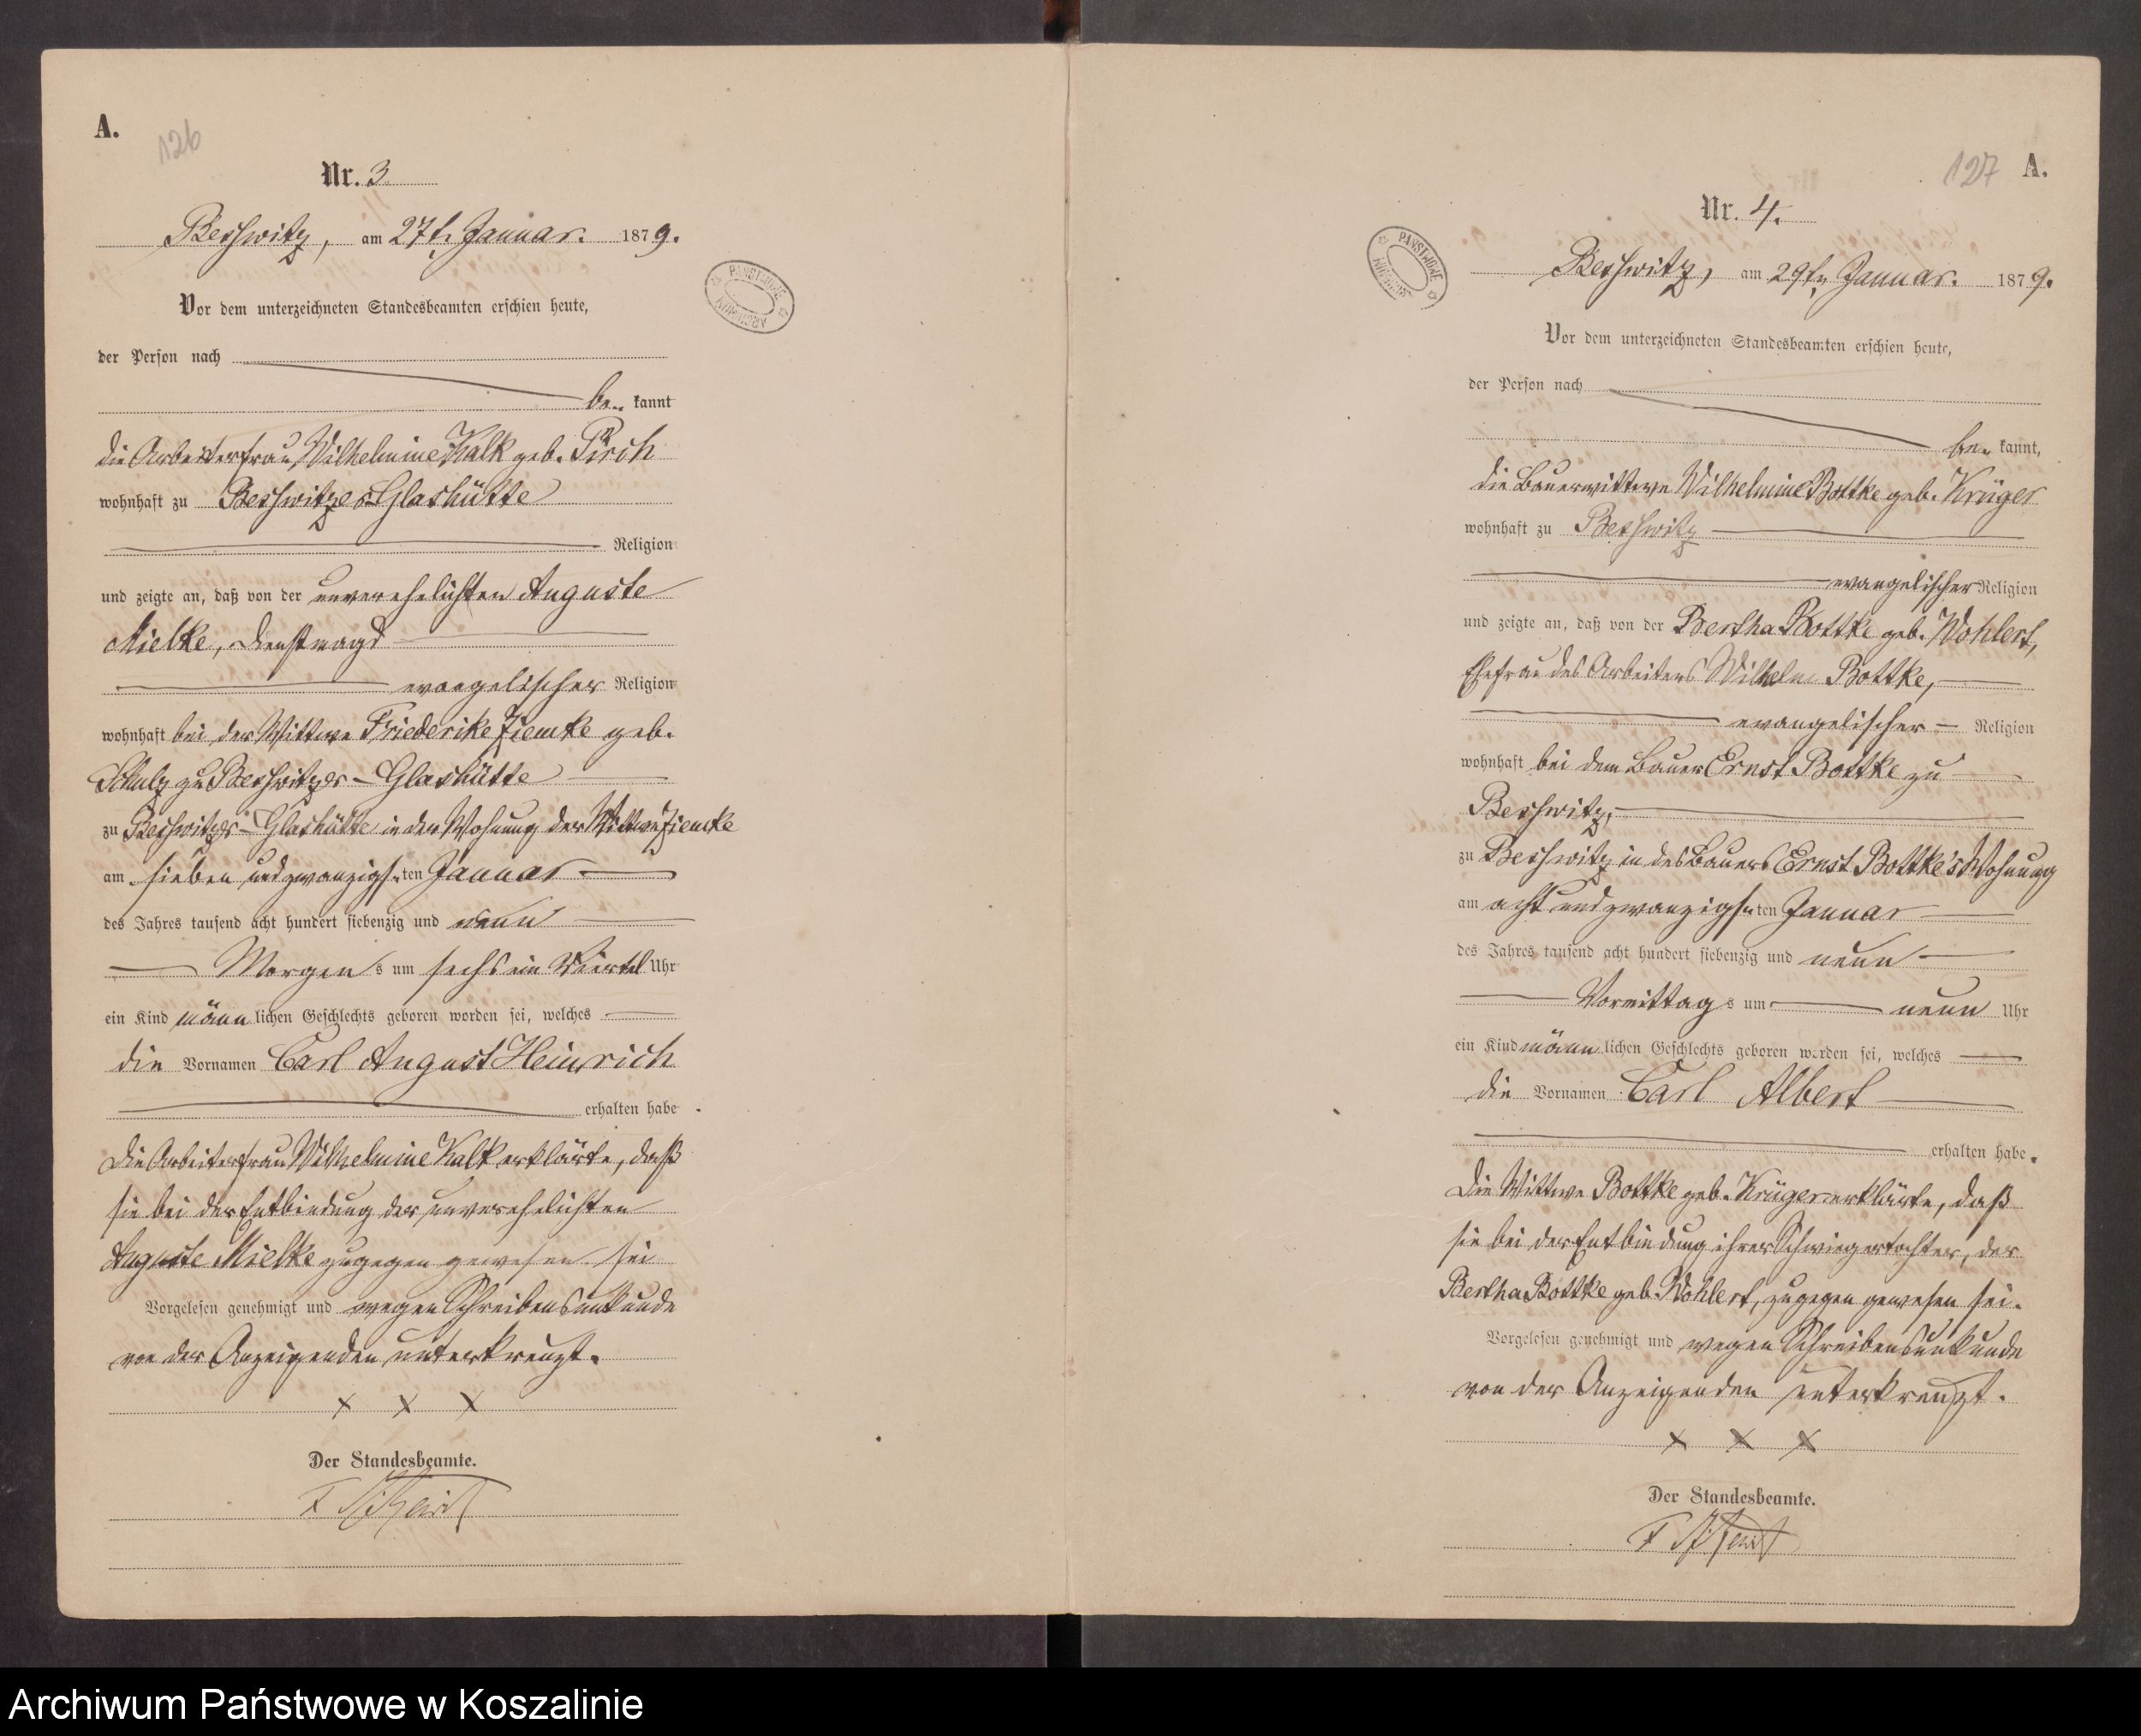 A.
126
Nr. 3.
Besswitz, am 27t. Januar. 1879.
PAŃSTWOWE ARCHIWUM
Vor dem unterzeichneten Standesbeamten erschien heute,
der Person nach
be- kannt
die Arbeiterfrau Wilhelmine Kalk geb. Pirch
wohnhaft zu Besswitzer Glashütte
Religion
und zeigte an, daß von der unverehelichten Auguste
Mielke, Dienstmagd
evangelischer Religion
wohnhaft bei der Wittwe Friederike Ziemke geb.
Schulz zu Besswitzer-Glashütte
zu Besswitzer-Glashütte in der Wohnung der Wittwe Ziemke
am sieben und zwanzigsten Januar
des Jahres tausend acht hundert siebenzig und neun
Morgens um sechs ein Viertel Uhr
ein Kind männlichen Geschlechts geboren worden sei, welches
die Vornamen Carl August Heinrich
erhalten habe.
Die Arbeiterfrau Wilhelmine Kalk erklärte, daß
sie bei der Entbindung der unverehelichten
Auguste Mielke zugegen gewesen sei
Vorgelesen genehmigt und wegen Schreibensunkunde
von der Anzeigenden unterkreuzt.
x x x
Der Standesbeamte.
127 A.
Nr. 4.
PAŃSTWOWE ARCHIWUM
Besswitz, am 29t. Januar. 1879.
Vor dem unterzeichneten Standesbeamten erschien heute,
der Person nach
be- kannt,
die Bauerwittwe Wilhelmine Bottke geb. Krüger
wohnhaft zu Besswitz
evangelischer Religion
und zeigte an, daß von der Bertha Bottke geb. Wohlert,
Ehefrau des Arbeiters Wilhelm Bottke,
evangelischer Religion
wohnhaft bei dem Bauer Ernst Bottke zu
Besswitz,
zu Besswitz in des Bauers Ernst Bottke's Wohnung
am acht und zwanzigsten Januar
des Jahres tausend acht hundert siebenzig und neun
Vormittags um neun Uhr
ein Kind männlichen Geschlechts geboren worden sei, welches
die Vornamen Carl Albert
erhalten habe.
Die Wittwe Bottke geb. Krüger erklärte, daß
sie bei der Entbindung ihrer Schwiegertochter, der
Bertha Bottke geb. Wohlert, zugegen gewesen sei.
Vorgelesen genehmigt und wegen Schreibensunkunde
von der Anzeigenden unterkreuzt.
x x x
Der Standesbeamte.
Archiwum Państwowe w Koszalinie